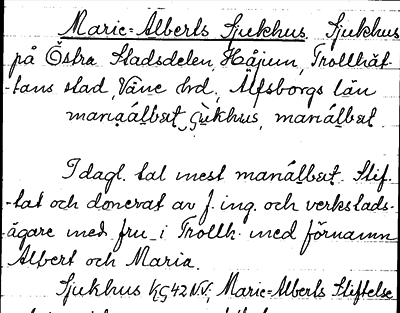 Marie=Alberts Sjukhus. Sjukhus
på Östra Stadsdelen, Håjum, Trollhät-
-tans stad, Väne hrd, Älfsborgs län
maria̱álbət̲ çùkhus, manálbət̲
I dagl. tal mest manálbət̲. Stif-
-tat och donerat av f. ing. och verkstads-
-ägare med fru i Trollh. med förnamn
Albert och Maria.
Sjukhus KG42NV; Marie=Alberts Stiftelse